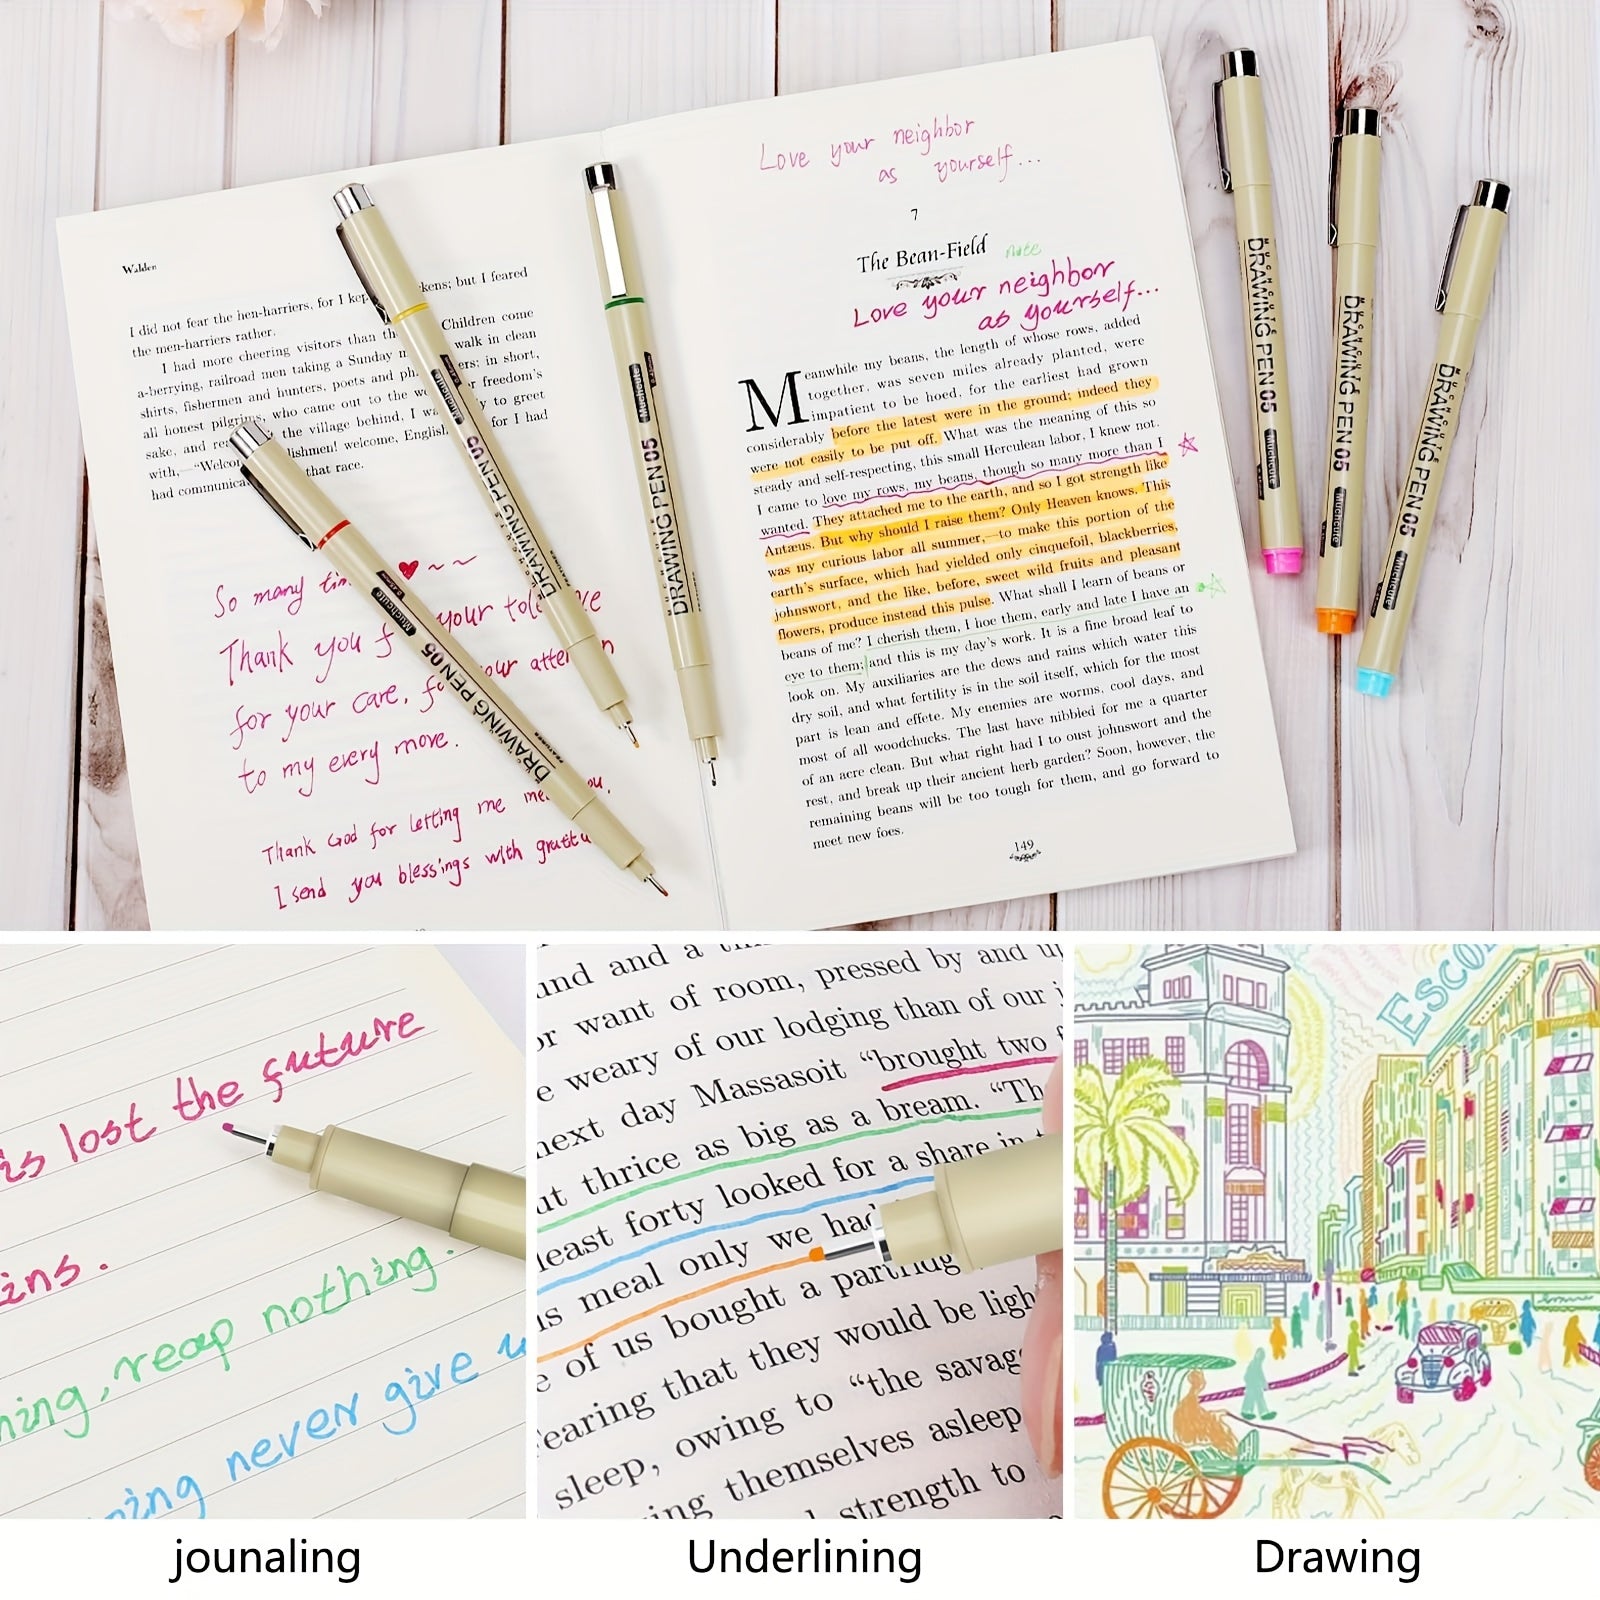 Walden
I did not fear the hen-harriers, for I kep kens; but I feared
the men-harriers rather.
I had more cheering visitors than the Children come
a-berrying, railroad men taking a Sunday m walk in clean
shirts, fishermen and hunters, poets and ph ers; in short,
all honest pilgrims, who came out to the wo r freedom's
sake, and re the village behind, I wa y to greet
with,—"Welco lishmen! welcome, English for I had
had communica that race.
So many tim ♥~~
Thank you f your tole ce
for your care, fo your atten n
to my every move.
Thank God for letting me me you.
I send you blessings with gratitu
DRAWING PEN 05
Muchcute
DRAWING PEN 05
Muchcute
DRAWING PEN 05
Muchcute
Love your neighbor
as yourself...
7
The Bean-Field note
Love your neighbor
as yourself...
Meanwhile my beans, the length of whose rows, added
together, was seven miles already planted, were
impatient to be hoed, for the earliest had grown
considerably before the latest were in the ground; indeed they
were not easily to be put off. What was the meaning of this so
steady and self-respecting, this small Herculean labor, I knew not.
I came to love my rows, my beans, though so many more than I
wanted. They attached me to the earth, and so I got strength like
Antæus. But why should I raise them? Only Heaven knows. This
was my curious labor all summer,—to make this portion of the
earth's surface, which had yielded only cinquefoil, blackberries,
johnswort, and the like, before, sweet wild fruits and pleasant
flowers, produce instead this pulse. What shall I learn of beans or
beans of me? I cherish them, I hoe them, early and late I have an
eye to them; and this is my day's work. It is a fine broad leaf to
look on. My auxiliaries are the dews and rains which water this
dry soil, and what fertility is in the soil itself, which for the most
part is lean and effete. My enemies are worms, cool days, and
most of all woodchucks. The last have nibbled for me a quarter
of an acre clean. But what right had I to oust johnswort and the
rest, and break up their ancient herb garden? Soon, however, the
remaining beans will be too tough for them, and go forward to
meet new foes.
149
DRAWING PEN 05
Muchcute
DRAWING PEN 05
Muchcute
DRAWING PEN 05
Muchcute
is lost the future
ins.
ning, reap nothing.
ning never give u
und and a tim
or want of room, pressed by and u
e weary of our lodging than of our j
next day Massasoit "brought two f
ut thrice as big as a bream. "Th
least forty looked for a share in t
is meal only we had
e of us bought a partridg
earing that they would be ligh
sleep, owing to "the savag
ing themselves asleep
d strength to
ESCO
jounaling
Underlining
Drawing